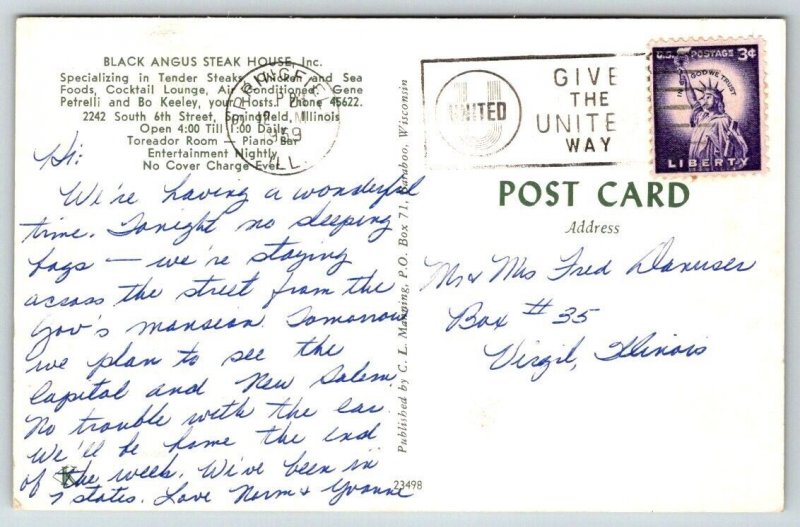 BLACK ANGUS STEAK HOUSE, Inc.
Specializing in Tender Steaks, Chicken and Sea
Foods, Cocktail Lounge, Air Conditioned, Gene
Petrelli and Bo Keeley, your Hosts. Phone 45622.
2242 South 6th Street, Springfield, Illinois
Open 4:00 Till 1:00 Daily
Toreador Room — Piano Bar
Entertainment Nightly
No Cover Charge Ever
Hi:
We're having a wonderful
time. Tonight no sleeping
bags — we're staying
across the street from the
Gov's mansion. Tomorrow
we plan to see the
Capital and New Salem.
No trouble with the car.
We'll be home the end
of the week. We've been in
7 states. Love Norm & Yvonne
Published by C. L. Manning, P.O. Box 71, Baraboo, Wisconsin
23498
SPRINGFIELD
PM
1959
ILL.
UNITED
GIVE
THE
UNITED
WAY
U.S. POSTAGE 3¢
IN GOD WE TRUST
LIBERTY
POST CARD
Address
Mr & Mrs Fred Danuser
Box # 35
Virgil, Illinois